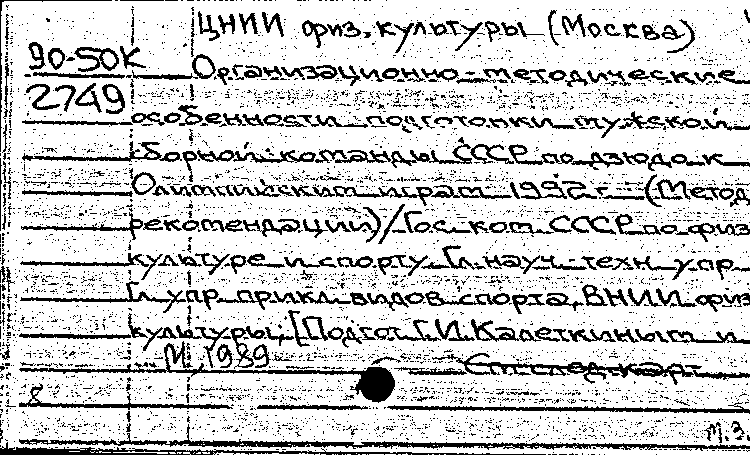 ЦНИИ физ. культуры (Москва)
90-50К
Организационно-методические
2749
особенности подготовки мужской
сборной команды СССР по дзюдо к
Олимпийским играм 1992 г. : (Метод.
рекомендации) / Гос. ком. СССР по физ.
культуре и спорту. Гл. науч.-техн. упр.
Гл. упр. прикл. видов спорта, ВНИИ физ.
культуры; [Подгот. Г.И. Калеткиным и
... М., 1989
См. след. карт.
8
м.з.